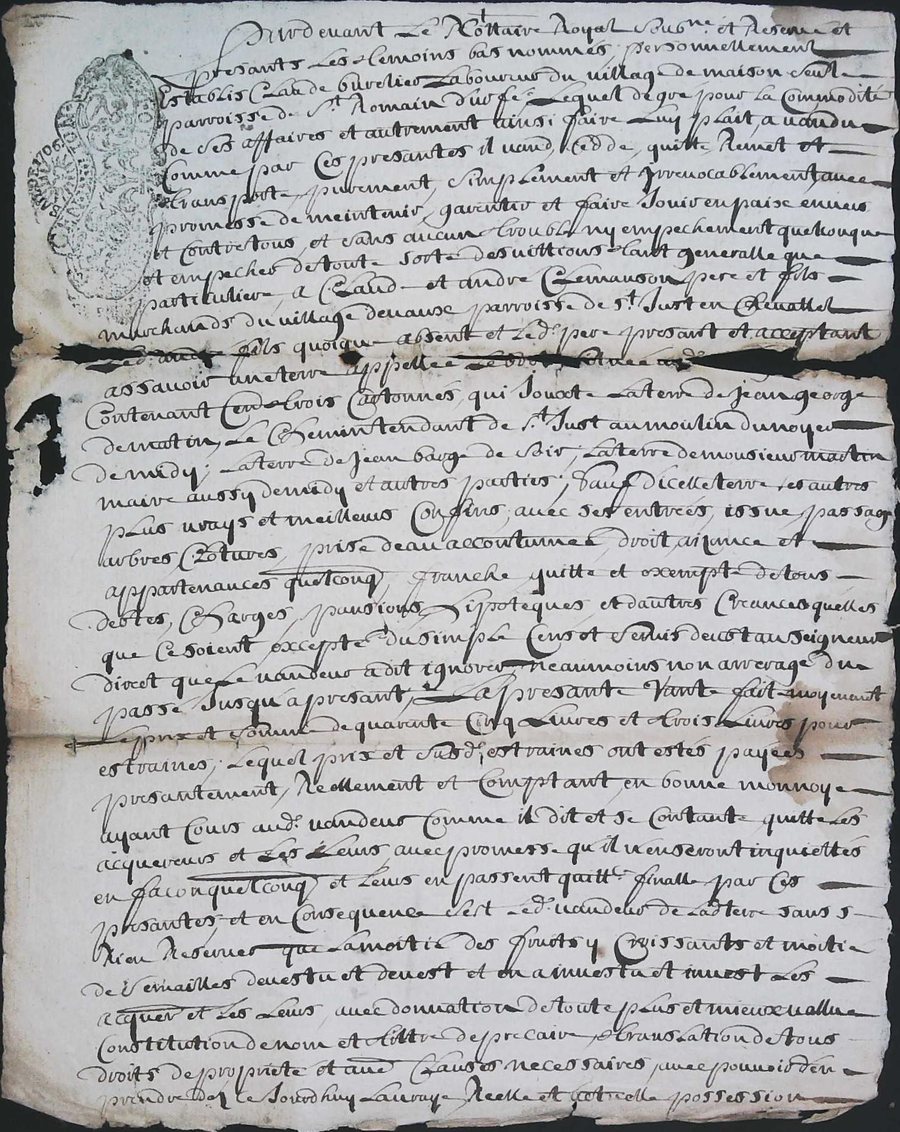 Pardevant Le Nottaire Royal Soubné et Reservé et
presants Les temoins bas nommés personnellement
Establis Claude burelier Laboureur du village de maison seule
parroisse de St Romain durfé Lequel de gre pour la Commodité
de Ses affaires et autrement ainsi faire Luy plait, a vandu
Comme par Ces presantes il vand, Cedde, quitte, Remet et
transporte purement, Simplement et Irrevocablement, avec
promesse de meintenir, garentir et faire Jouir en paix envers
et Contre tous, et sans aucun trouble ny empechement quelconque
et empecher de toute sorte desvittions tant generalle que
particuliere, a Claude et andré Clemanson pere et fils
marchands du village de pere parroisse de St Just en Chevallet
Led. andré fils quoique absent et Led. pere presant et acceptant
assavoir une terre appellée
Contenant Cent trois Cartonnés, qui Jouxte La terre de Jean george
de matin, Le Chemin tendant de St Just au moulin du noyer
de midy; La terre de Jean barge de Soir; La terre de monsieur martin
maire aussy de midy et autres parties; Sauf dicelle terre ses autres
plus vrays et meilleurs Confins, avec ses entrées, issue, passage
arbres Clotures, prise deau accoutumée, droit, aizance et
appartenances quelconq, franche quitte et exempte de tous
debtes, Charges, pansions, hipoteques, et dautres Creances quelles
que Ce soient excepté du simple Cens et Servis deub au seigneur
direct que Le vandeur a dit ignorer neaumoins non arreragé du
passé Jusqu'a presant; La presante vante fait moyenant
Le prix et somme de quarente Cinq Livres et trois Livres pour
estraines; Lequel prix et susd. estraines ont estés payées
presantement, Reellement et Comptant, en bonne monnoye
ayant Cours aud. vandeur Comme il dit et se Contante, quitte Les
acquereurs et Les Leurs, avec promesse qu'il n'en seront inquiettés
en facon quelconq et Leurs en passent quitte. finalle par Ces
presantes, et en Consequence sest Led. vandeur de Lad. terre sans s
Rien Reserver que La moitié des fruits y Croissants et moitié
de Semailles devestu et devest et en a investu et invest Les
acquer et Les Leurs, avec donnation de toute plus et mieux vallue
Constitution de nom et tittre de precaire translation de tous
droits de propriété et avec Clauses necessaires, avec pouvoir d'en
prendre dez ce Jourdhuy La vraye Reelle et actuelle possession